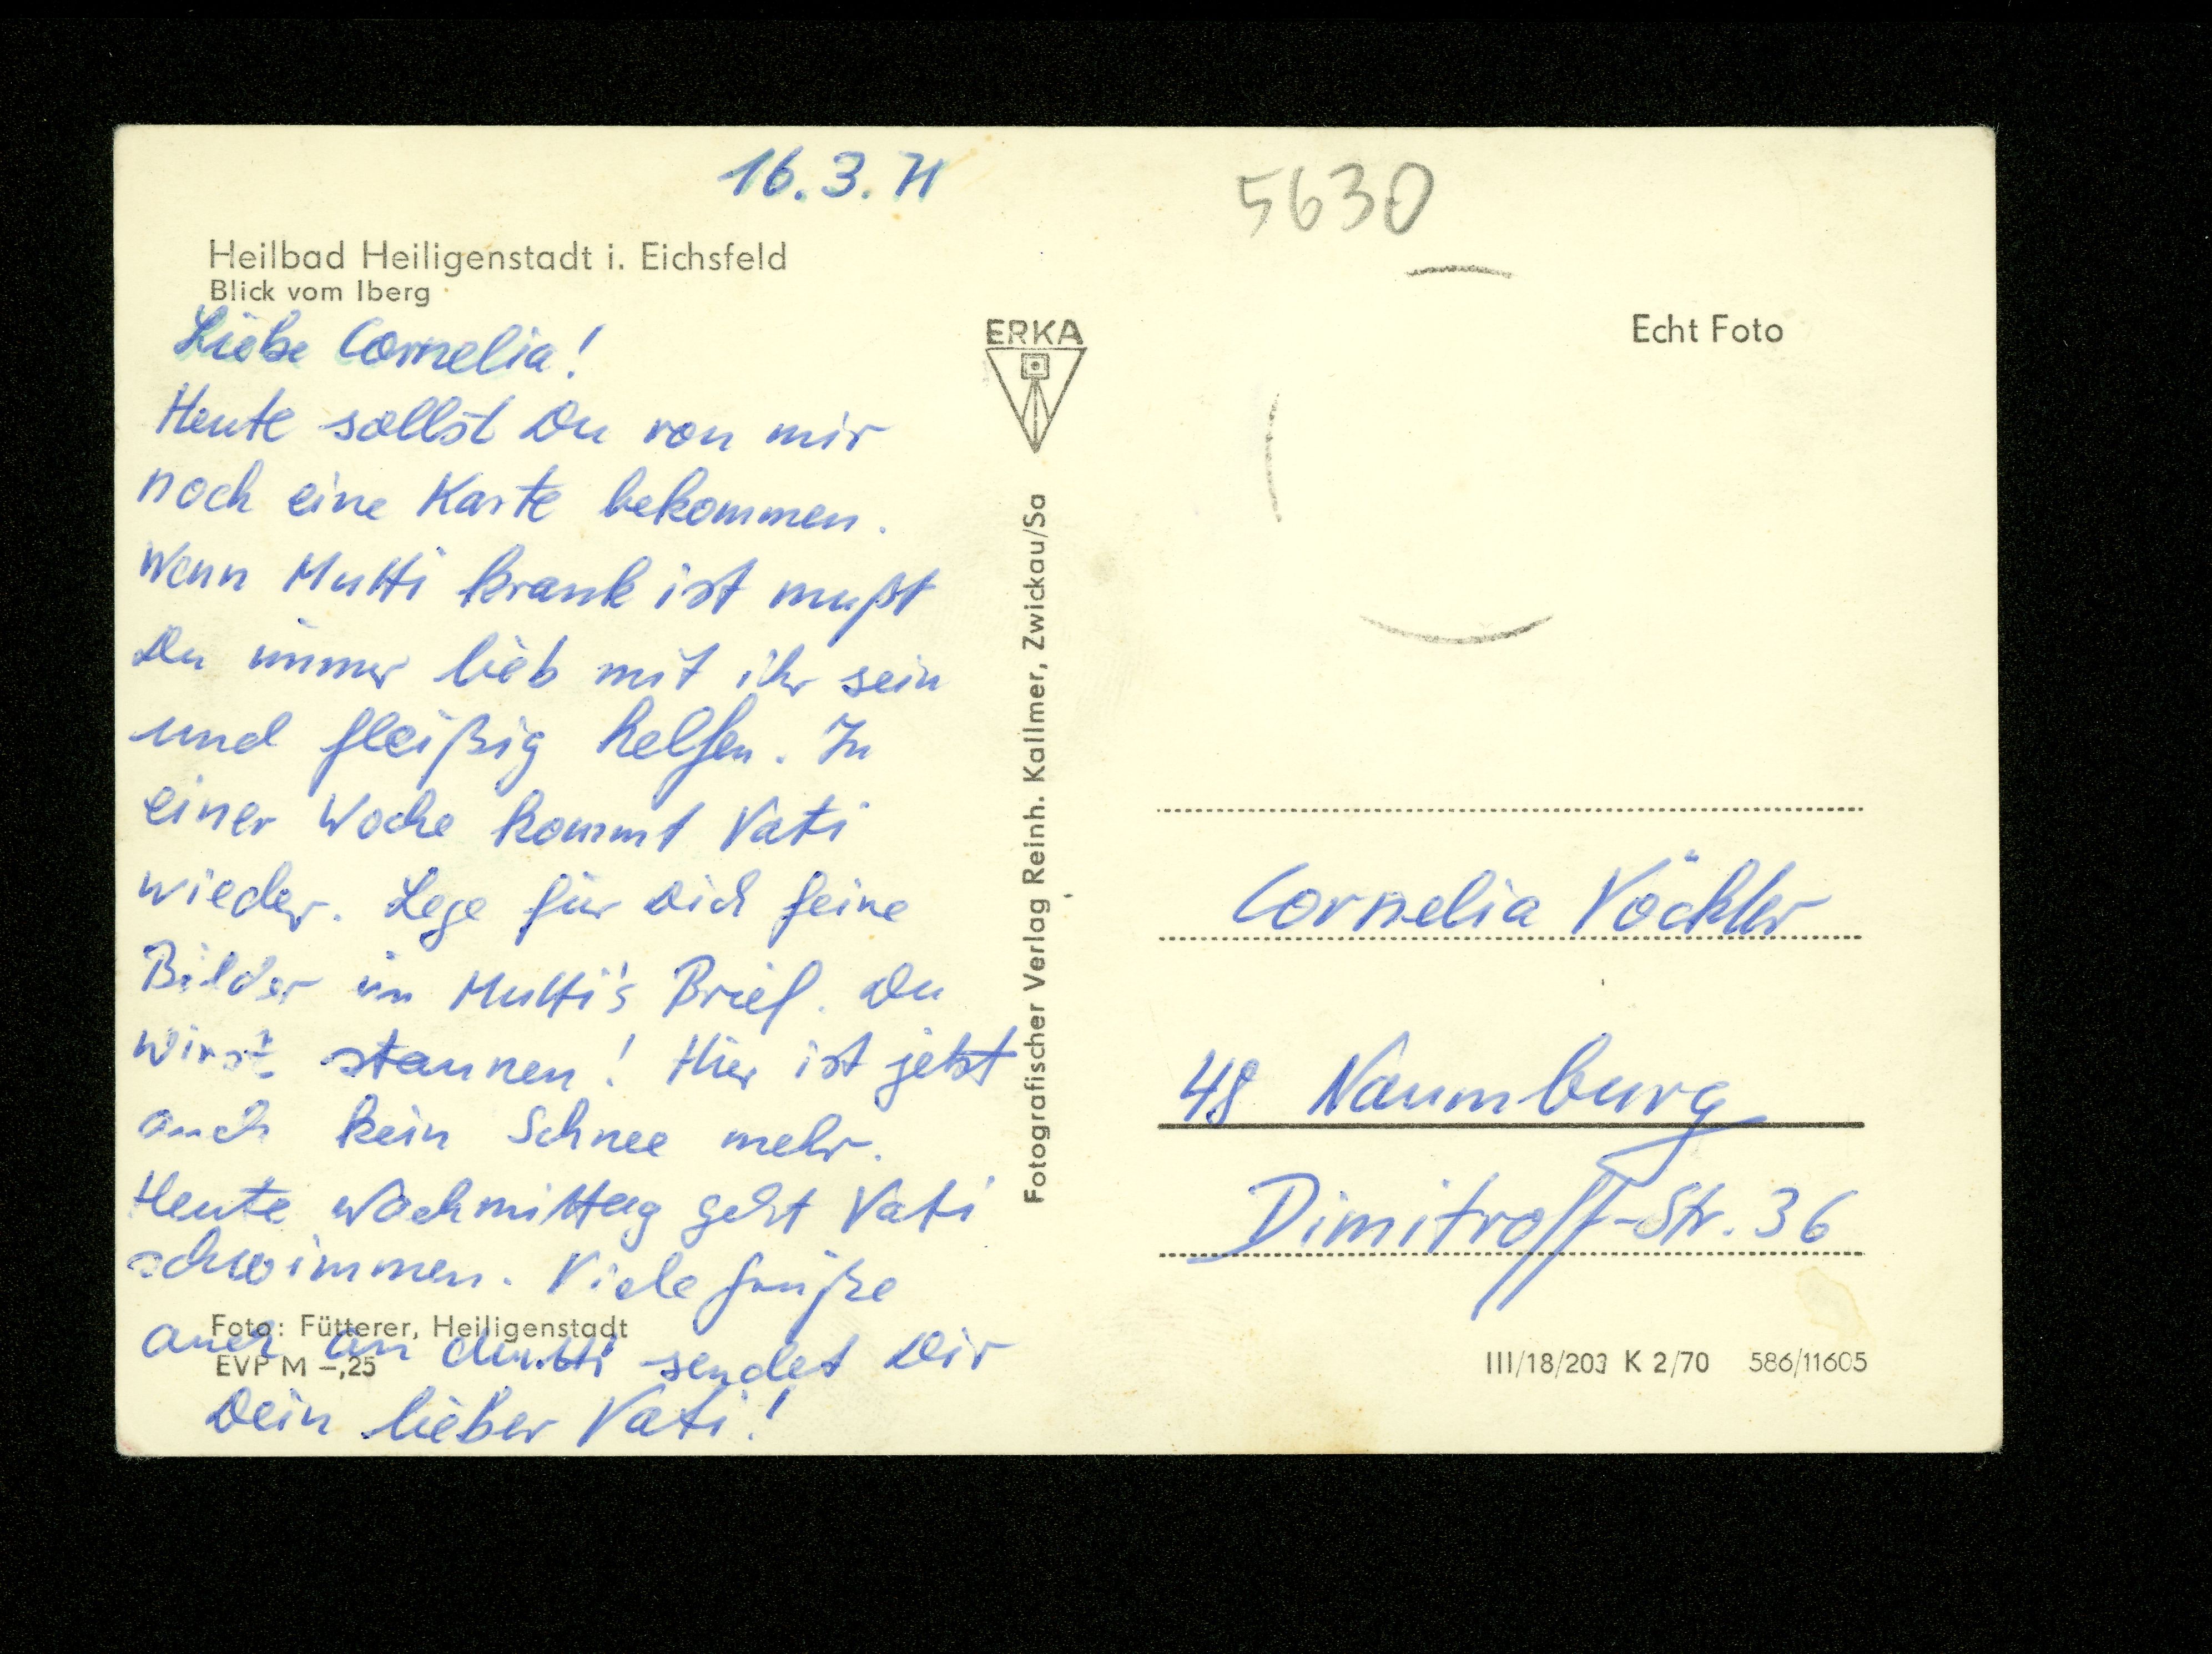 16.3.71
5630
Heilbad Heiligenstadt i. Eichsfeld
Blick vom Iberg
Liebe Cornelia!
Heute sollst Du von mir
noch eine Karte bekommen.
Wenn Mutti krank ist mußt
Du immer lieb mit ihr sein
und fleißig helfen. In
einer Woche kommt Vati
wieder. Lege für Dich feine
Bilder in Mutti's Brief. Du
wirst staunen! Hier ist jetzt
auch kein Schnee mehr.
Heute Nachmittag geht Vati
schwimmen. Viele Grüße
auch an Mutti sendet Dir
Dein lieber Vati!
Foto: Fütterer, Heiligenstadt
EVP M –,25
ERKA
Fotografischer Verlag Reinh. Kallmer, Zwickau/Sa
Echt Foto
Cornelia Vöckler
48 Naumburg
Dimitroff-Str. 36
III/18/203 K 2/70 586/11605